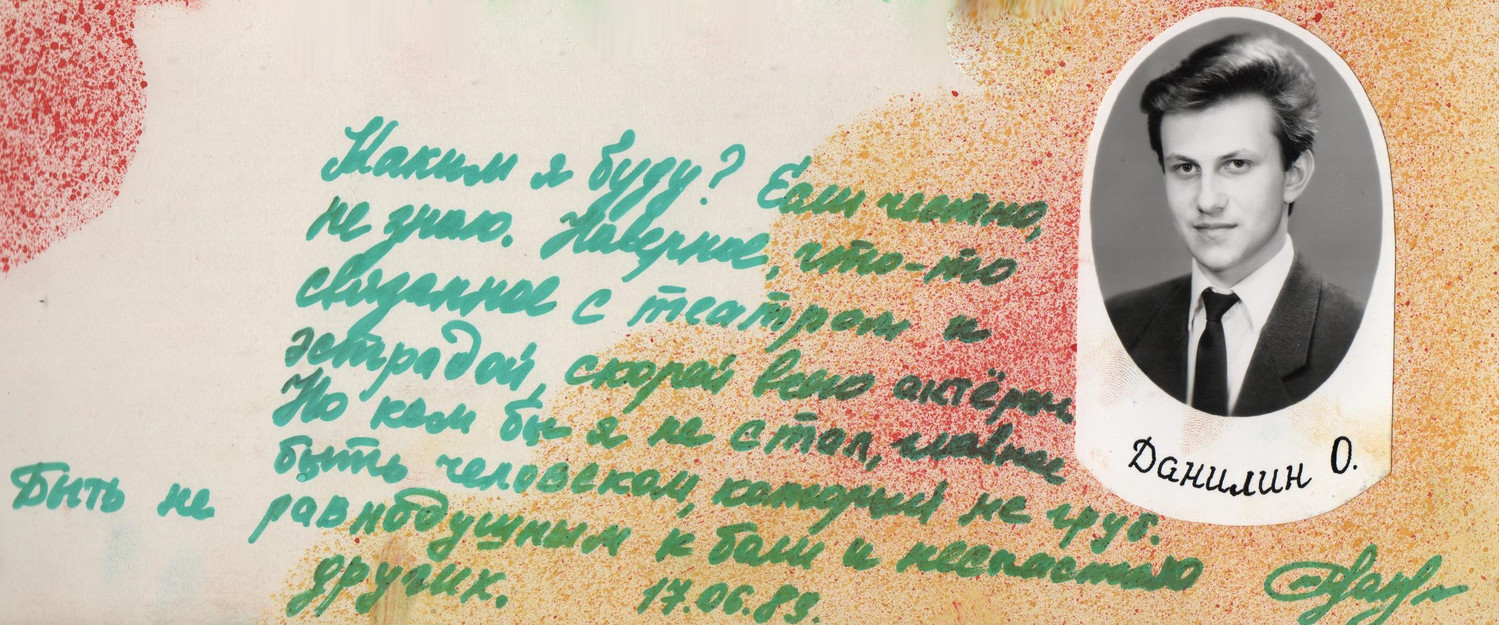 Каким я буду? Если честно,
не знаю. Наверное, что-то
связанное с театром и
эстрадой, скорей всего актёром.
Но кем бы я не стал, главное
быть человеком, который не груб.
Быть не равнодушным к боли и несчастью
других. 17.06.89.
Данилин О.